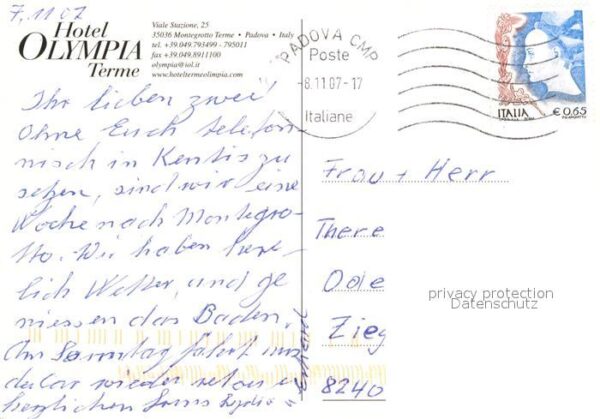 7.11 07
Hotel
OLYMPIA
Terme
Viale Stazione, 25
35036 Montegrotto Terme • Padova • Italy
tel. +39.049.793499 - 795011
fax +39.049.8911100
olympia@iol.it
www.hoteltermeolympia.com
PADOVA CMP
Poste
-8.11 07-17
Italiane
ITALIA
€ 0,65
Ihr lieben zwei
Ohne Euch telefon-
nisch in Kentis zu
setzen, sind wir eine
Woche nach Montegro-
tto. Wir haben herr-
lich Wetter, und ge
niessen das Baden.
Am Sonntag fährt uns
der Car wieder retour
herzlichen Gruss
Frau + Herr
There
Ode
Zieg
8240
privacy protection
Datenschutz